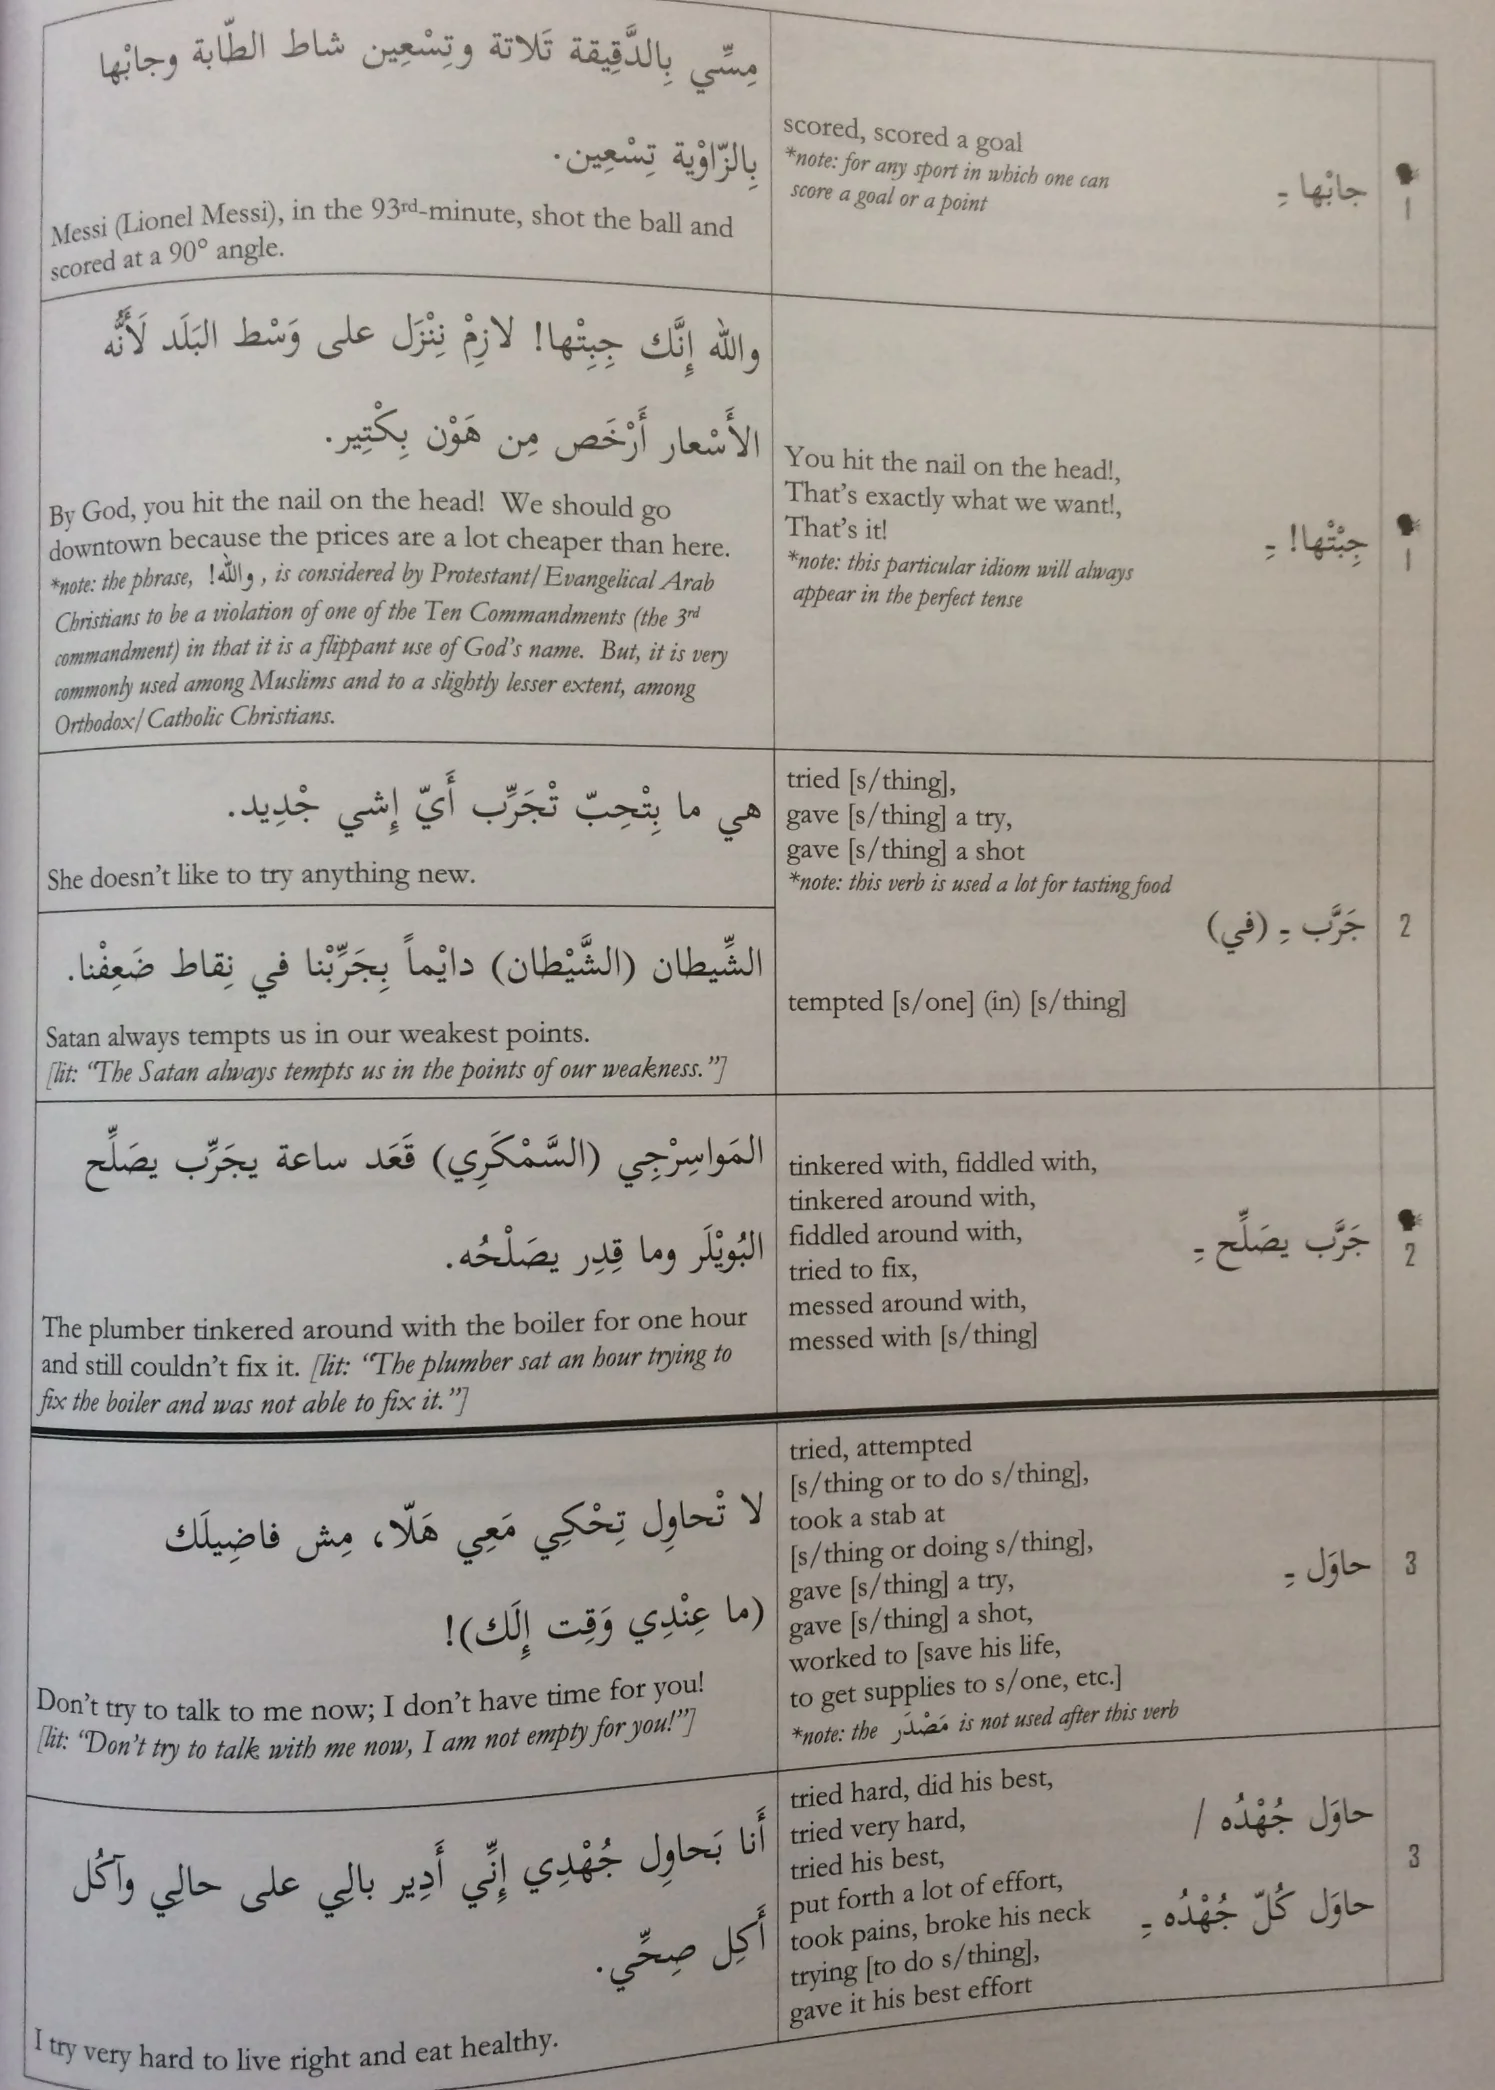 مِسِّي بِالدَّقِيقة تَلاتة وتِسْعِين شاط الطّابة وجابْها
بِالزّاوْية تِسْعِين.
Messi (Lionel Messi), in the 93rd-minute, shot the ball and
scored at a 90° angle.
scored, scored a goal
*note: for any sport in which one can
score a goal or a point
جابْها ـِ
1
والله إِنَّك جِبِتْها! لازِمْ نِنْزَل على وَسْط البَلَد لَأَنُّه
الأَسْعار أَرْخَص مِن هَوْن بِكْتِير.
By God, you hit the nail on the head! We should go
downtown because the prices are a lot cheaper than here.
*note: the phrase, والله!, is considered by Protestant/Evangelical Arab
Christians to be a violation of one of the Ten Commandments (the 3rd
commandment) in that it is a flippant use of God's name. But, it is very
commonly used among Muslims and to a slightly lesser extent, among
Orthodox/Catholic Christians.
You hit the nail on the head!,
That's exactly what we want!,
That's it!
*note: this particular idiom will always
appear in the perfect tense
جِبْتْها! ـِ
1
هي ما بِتْحِبّ تْجَرِّب أَيّ إِشي جْدِيد.
She doesn't like to try anything new.
tried [s/thing],
gave [s/thing] a try,
gave [s/thing] a shot
*note: this verb is used a lot for tasting food
جَرَّب ـِ (في)
2
الشِّيطان (الشَّيْطان) دايْماً بِجَرِّبْنا في نِقاط ضَعِفْنا.
Satan always tempts us in our weakest points.
[lit: "The Satan always tempts us in the points of our weakness."]
tempted [s/one] (in) [s/thing]
المَواسِرْجِي (السَّمْكَرِي) قَعَد ساعة يجَرِّب يصَلِّح
البُويْلَر وما قِدِر يصَلْحُه.
The plumber tinkered around with the boiler for one hour
and still couldn't fix it. [lit: "The plumber sat an hour trying to
fix the boiler and was not able to fix it."]
tinkered with, fiddled with,
tinkered around with,
fiddled around with,
tried to fix,
messed around with,
messed with [s/thing]
جَرَّب يصَلِّح ـِ
2
لا تْحاوِل تِحْكِي مَعِي هَلّا، مِش فاضِيلَك
(ما عِنْدِي وَقِت إِلَك)!
Don't try to talk to me now; I don't have time for you!
[lit: "Don't try to talk with me now, I am not empty for you!"]
tried, attempted
[s/thing or to do s/thing],
took a stab at
[s/thing or doing s/thing],
gave [s/thing] a try,
gave [s/thing] a shot,
worked to [save his life,
to get supplies to s/one, etc.]
*note: the مَصْدَر is not used after this verb
حاوَل ـِ
3
أَنا بَحاوِل جُهْدِي إِنِّي أَدِير بالِي على حالِي وآكُل
أَكِل صِحِّي.
I try very hard to live right and eat healthy.
tried hard, did his best,
tried very hard,
tried his best,
put forth a lot of effort,
took pains, broke his neck
trying [to do s/thing],
gave it his best effort
حاوَل جُهْدُه /
حاوَل كُلّ جُهْدُه ـِ
3